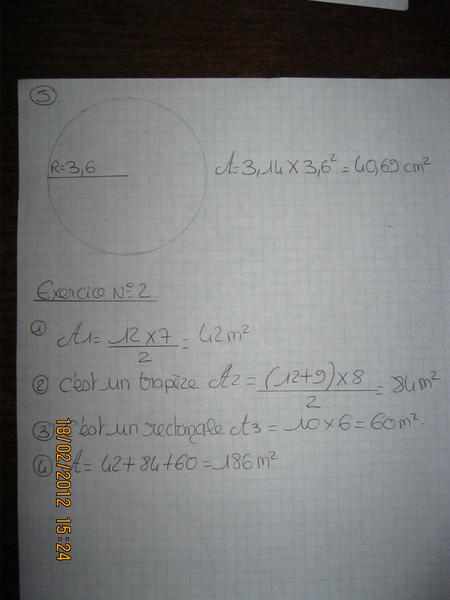 5
R=3,6
A=3,14 × 3,6² = 40,69 cm²
Exercice N°2
1 A1 = 12 × 7 / 2 = 42 m²
2 C'est un trapèze A2 = (12+9) × 8 / 2 = 84 m²
3 C'est un rectangale A3 = 10 × 6 = 60 m².
4 A = 42 + 84 + 60 = 186 m²
18/02/2012 15:24